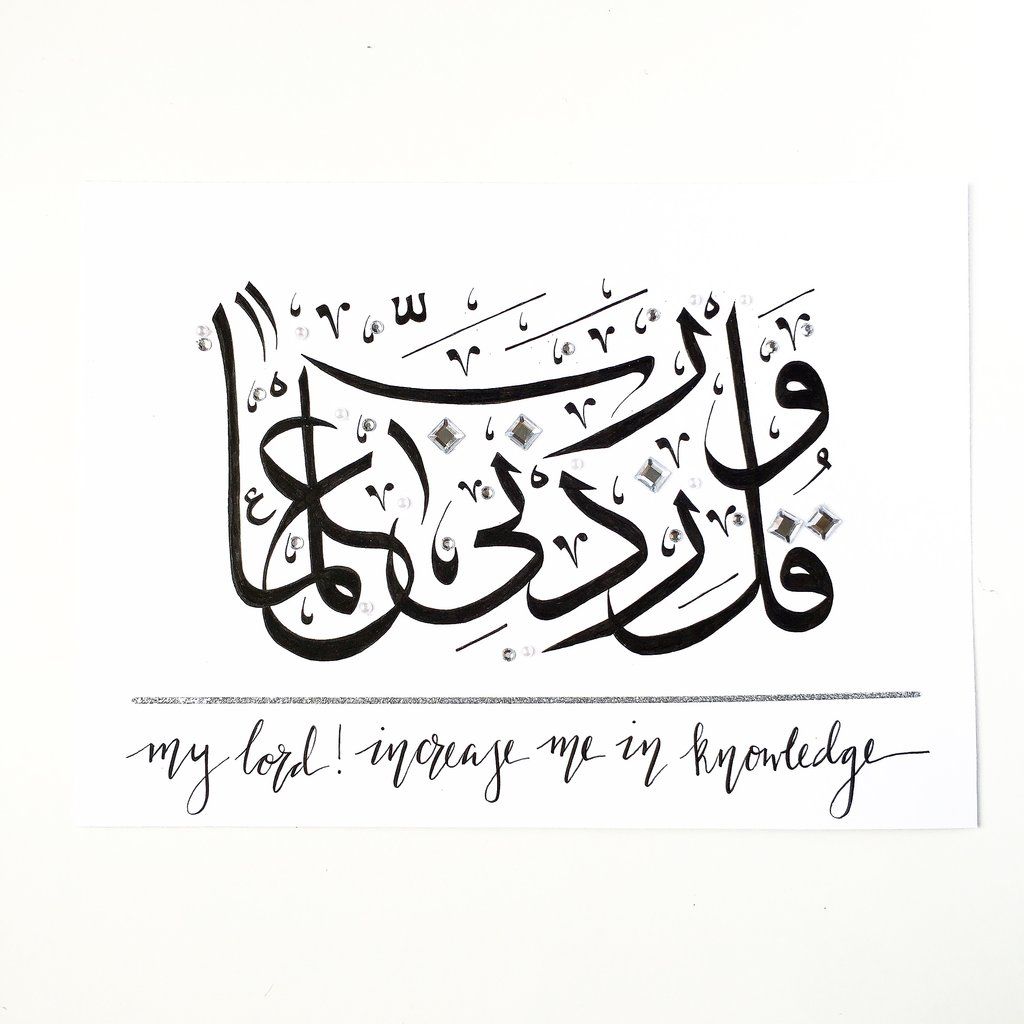 وَقُل رَّبِّ زِدْنِي عِلْمًا
my lord! increase me in knowledge